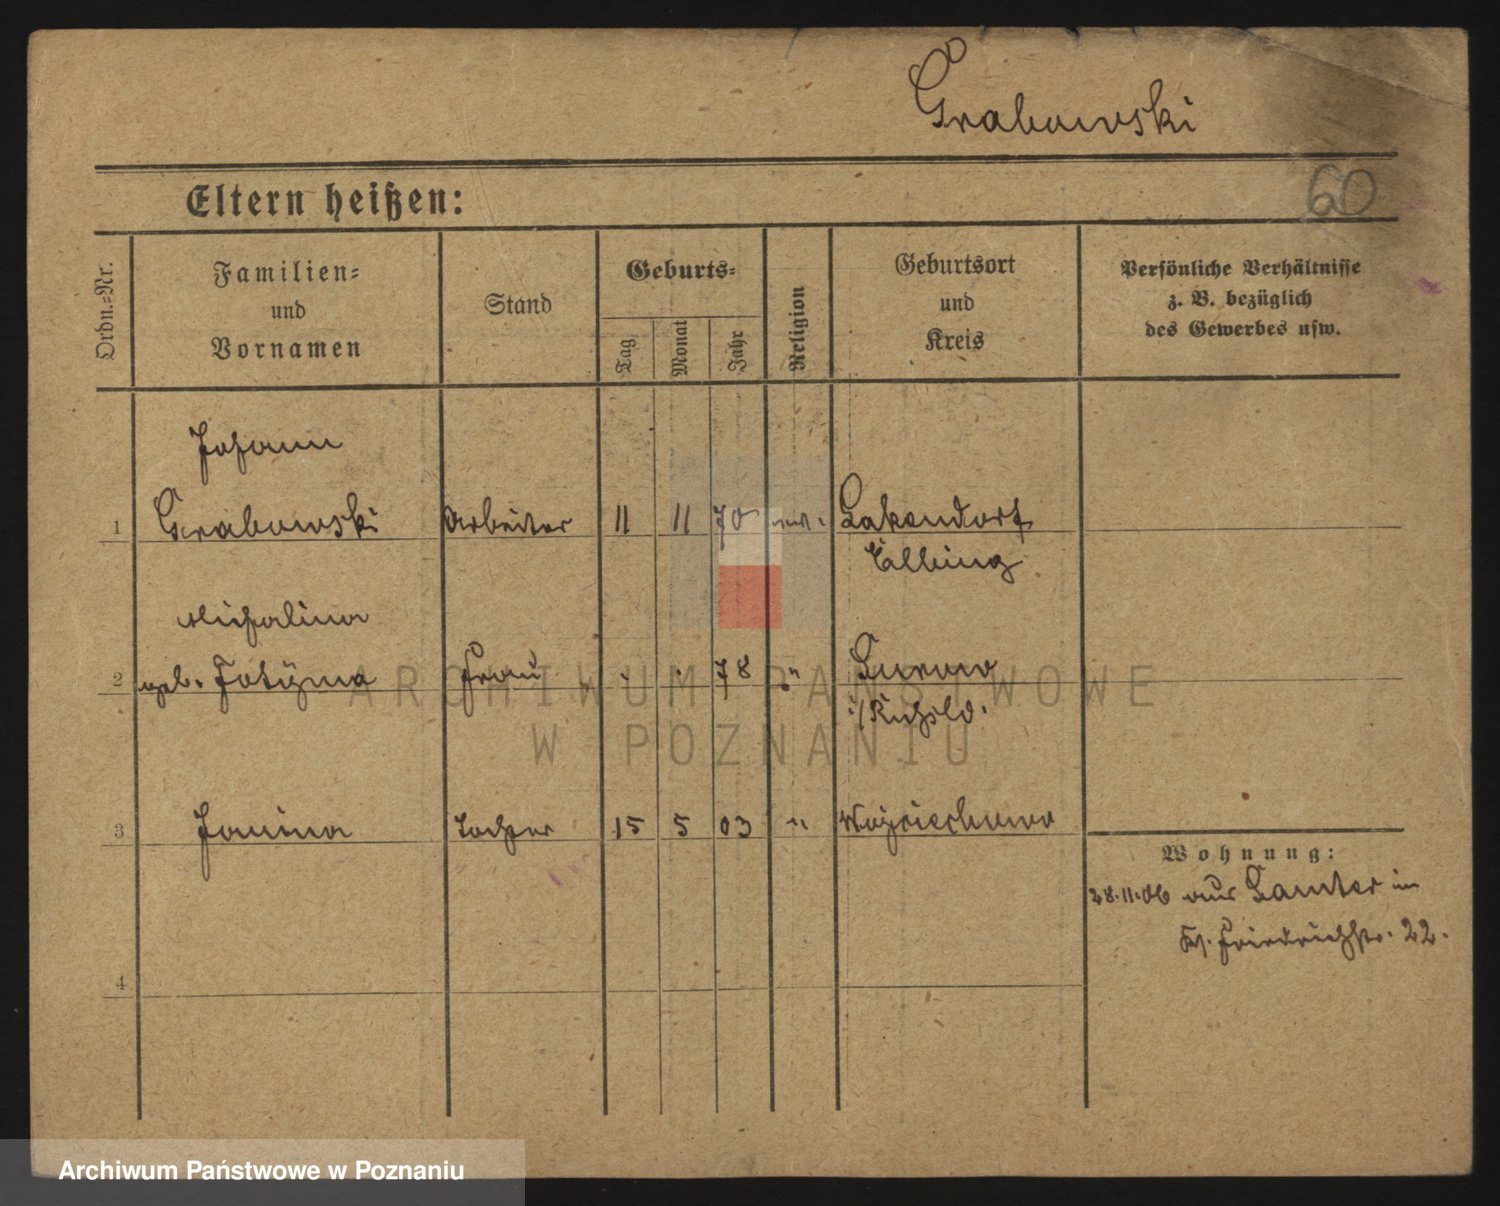 Grabowski
60
Eltern heißen:
Ordn.-Nr.
Familien-
und
Vornamen
Stand
Geburts-
Tag
Monat
Jahr
Religion
Geburtsort
und
Kreis
Persönliche Verhältnisse
z. B. bezüglich
des Gewerbes usw.
Johann
1 Grabowski Arbeiter 11 11 70 Lakendorf
Elbing
Michalina
2 geb. Fotyma Frau . . 78 "
3 Janina Tochter 15 5 03 " Wojciechowo
Wohnung:
28.11.06 aus Samter in
Friedrichstr. 22.
4
ARCHIWUM PAŃSTWOWE
W POZNANIU
Archiwum Państwowe w Poznaniu